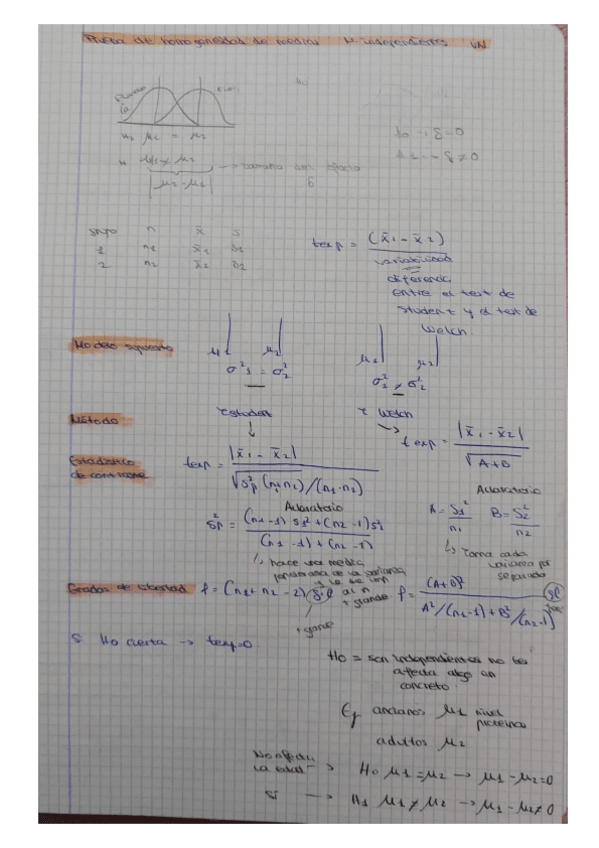 Prueba de homogeneidad de medias M. independientes VN
H0 μ1 = μ2
H0 → δ=0
H1 → δ≠0
H1 μ1 ≠ μ2 → tamaño del efecto
|μ2 - μ1| δ
grupo n x̄ s
1 n1 x̄1 s1
2 n2 x̄2 s2
texp = (x̄1 - x̄2)
variabilidad
diferencia
entre el test de
student y el test de
Welch.
Modelo supuesto
μ1 μ2
σ²1 = σ²2
μ1 μ2
σ²1 ≠ σ²2
Método
t student
t Welch
Estadístico
de contraste
texp = |x̄1 - x̄2|
√s²p (n1+n2)/(n1·n2)
texp = |x̄1 - x̄2|
√A+B
Aclaratorio
s²p = (n1-1) s1² + (n2-1) s²2
(n1-1) + (n2-1)
hace una media
ponderada de la varianza
Aclaratorio
A = S1² B = S2²
n1 n2
Toma cada
varianza por
separado
Grados de libertad f = (n1+n2-2)
al n
+ grande
+ grande
f = (A+B)²
A²/(n1-1) + B²/(n2-1)
Si H0 cierta → texp=0
H0 = son independientes no les
affecta algo en
concreto.
Ej ancianos μ1 nivel
proteínas
adultos μ2
No affecta
la edad → H0 μ1=μ2 → μ1-μ2=0
Si → H1 μ1≠μ2 → μ1-μ2≠0